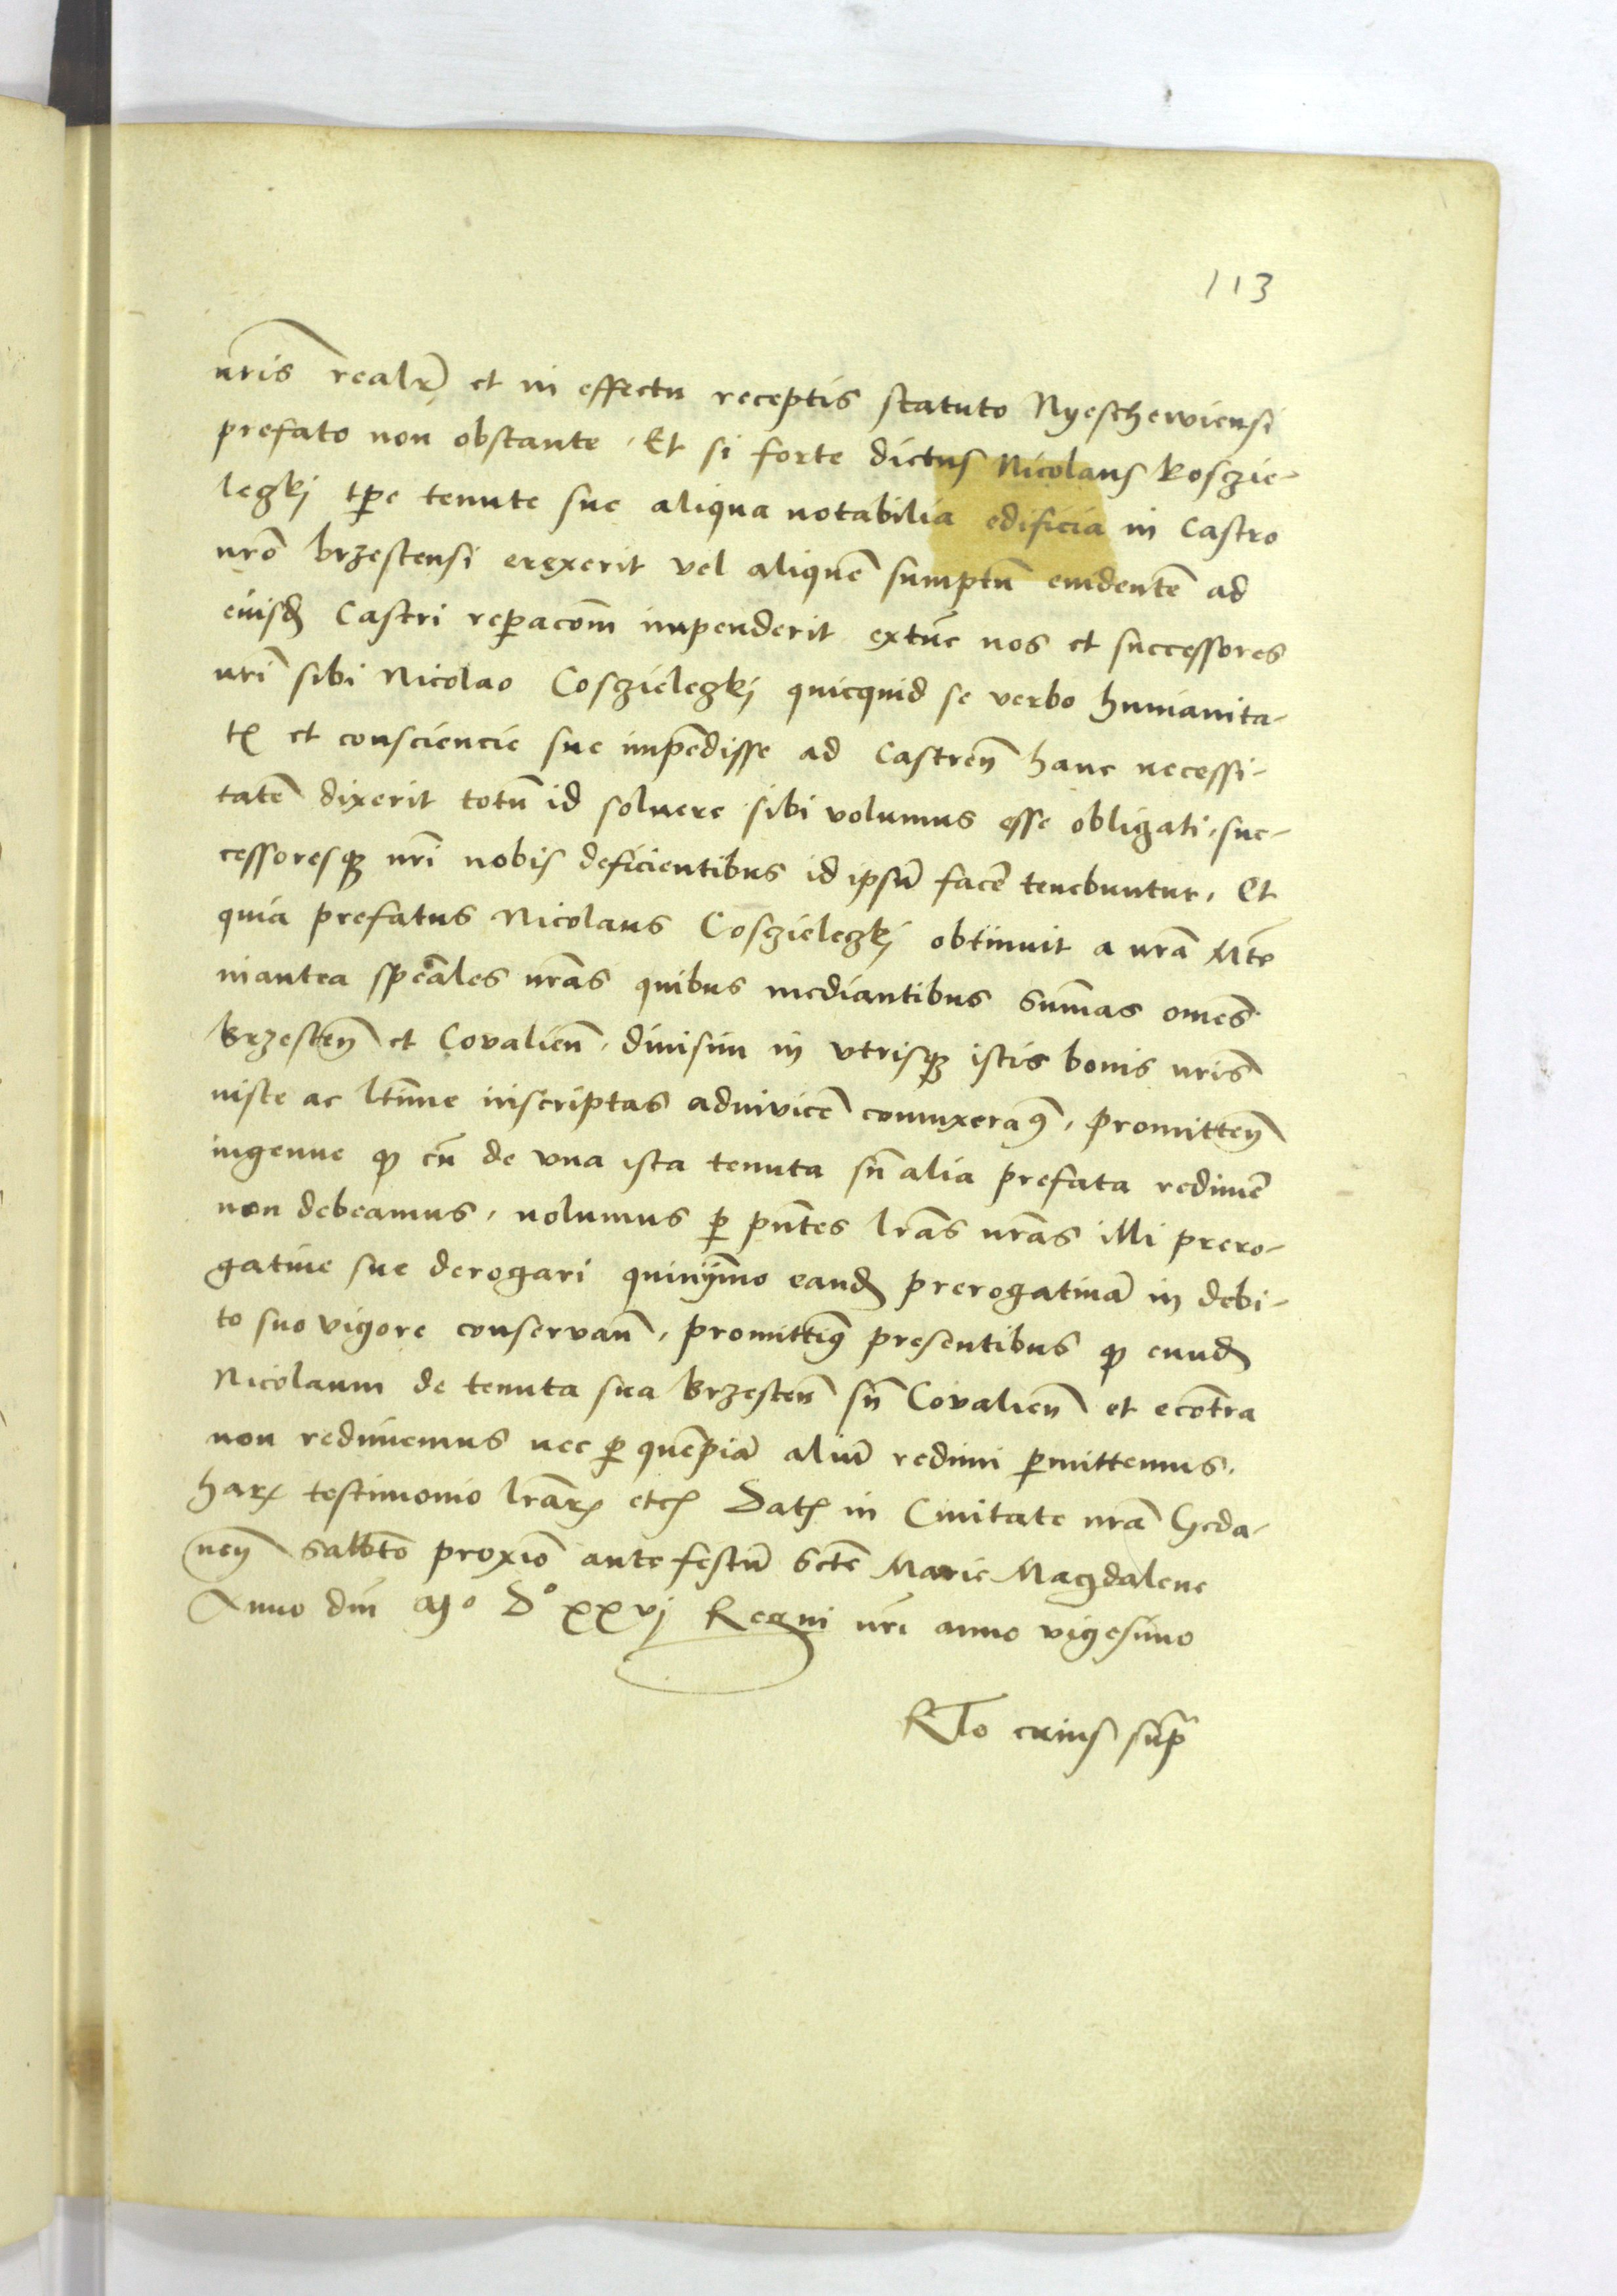 113
nris realr et in effectu receptis statuto Nyeschewiensi
prefato non obstante. Et si forte dictus Nicolaus Koszie-
leczkj tpe tenute sue aliqua notabilia edificia in Castro
nro brzestensi erexerit vel aliquem sumptum euidentem ad
euisd Castri repacom impenderit extunc nos et successores
nri sibi Nicolao Coszieleczkj quicquid se verbo humanita-
tis et consciencie sue impendisse ad Castren hanc necessi-
tatem dixerit totum id soluere sibi volumus esse obligati, suc-
cessoresqz nri nobis deficientibus id ipsum facere tenebuntur. Et
quia prefatus Nicolaus Coszieleczkj obtinuit a nra Mte
inantea speales nras quibus mediantibus summas omes
Brzesten et Covalien. diuisim in vtrisqz istis bonis nris
iuste ac ltime inscriptas adinuicem coniunxeramus, promitten
ingenue qp eum de vna ista tenuta sn alia prefata redimere
non debeamus, nolumus p pntes lras nras illi prero-
gatiue sue derogari quinymmo eand prerogatiuam in debi-
to suo vigore conservan, promittimus presentibus qp eund
Nicolaum de tenuta sua Brzesten sn Covalien et econtra
non redimemus nec p quempiam alium redimi pmittemus.
harum testimonio lrarum etc Dat in Ciuitate nra Geda-
nen Sabbto proximo ante festum Scte Marie Magdalene
Anno dni Mo Do xxvj Regni nri anno vigesimo
Rlo cuius sup